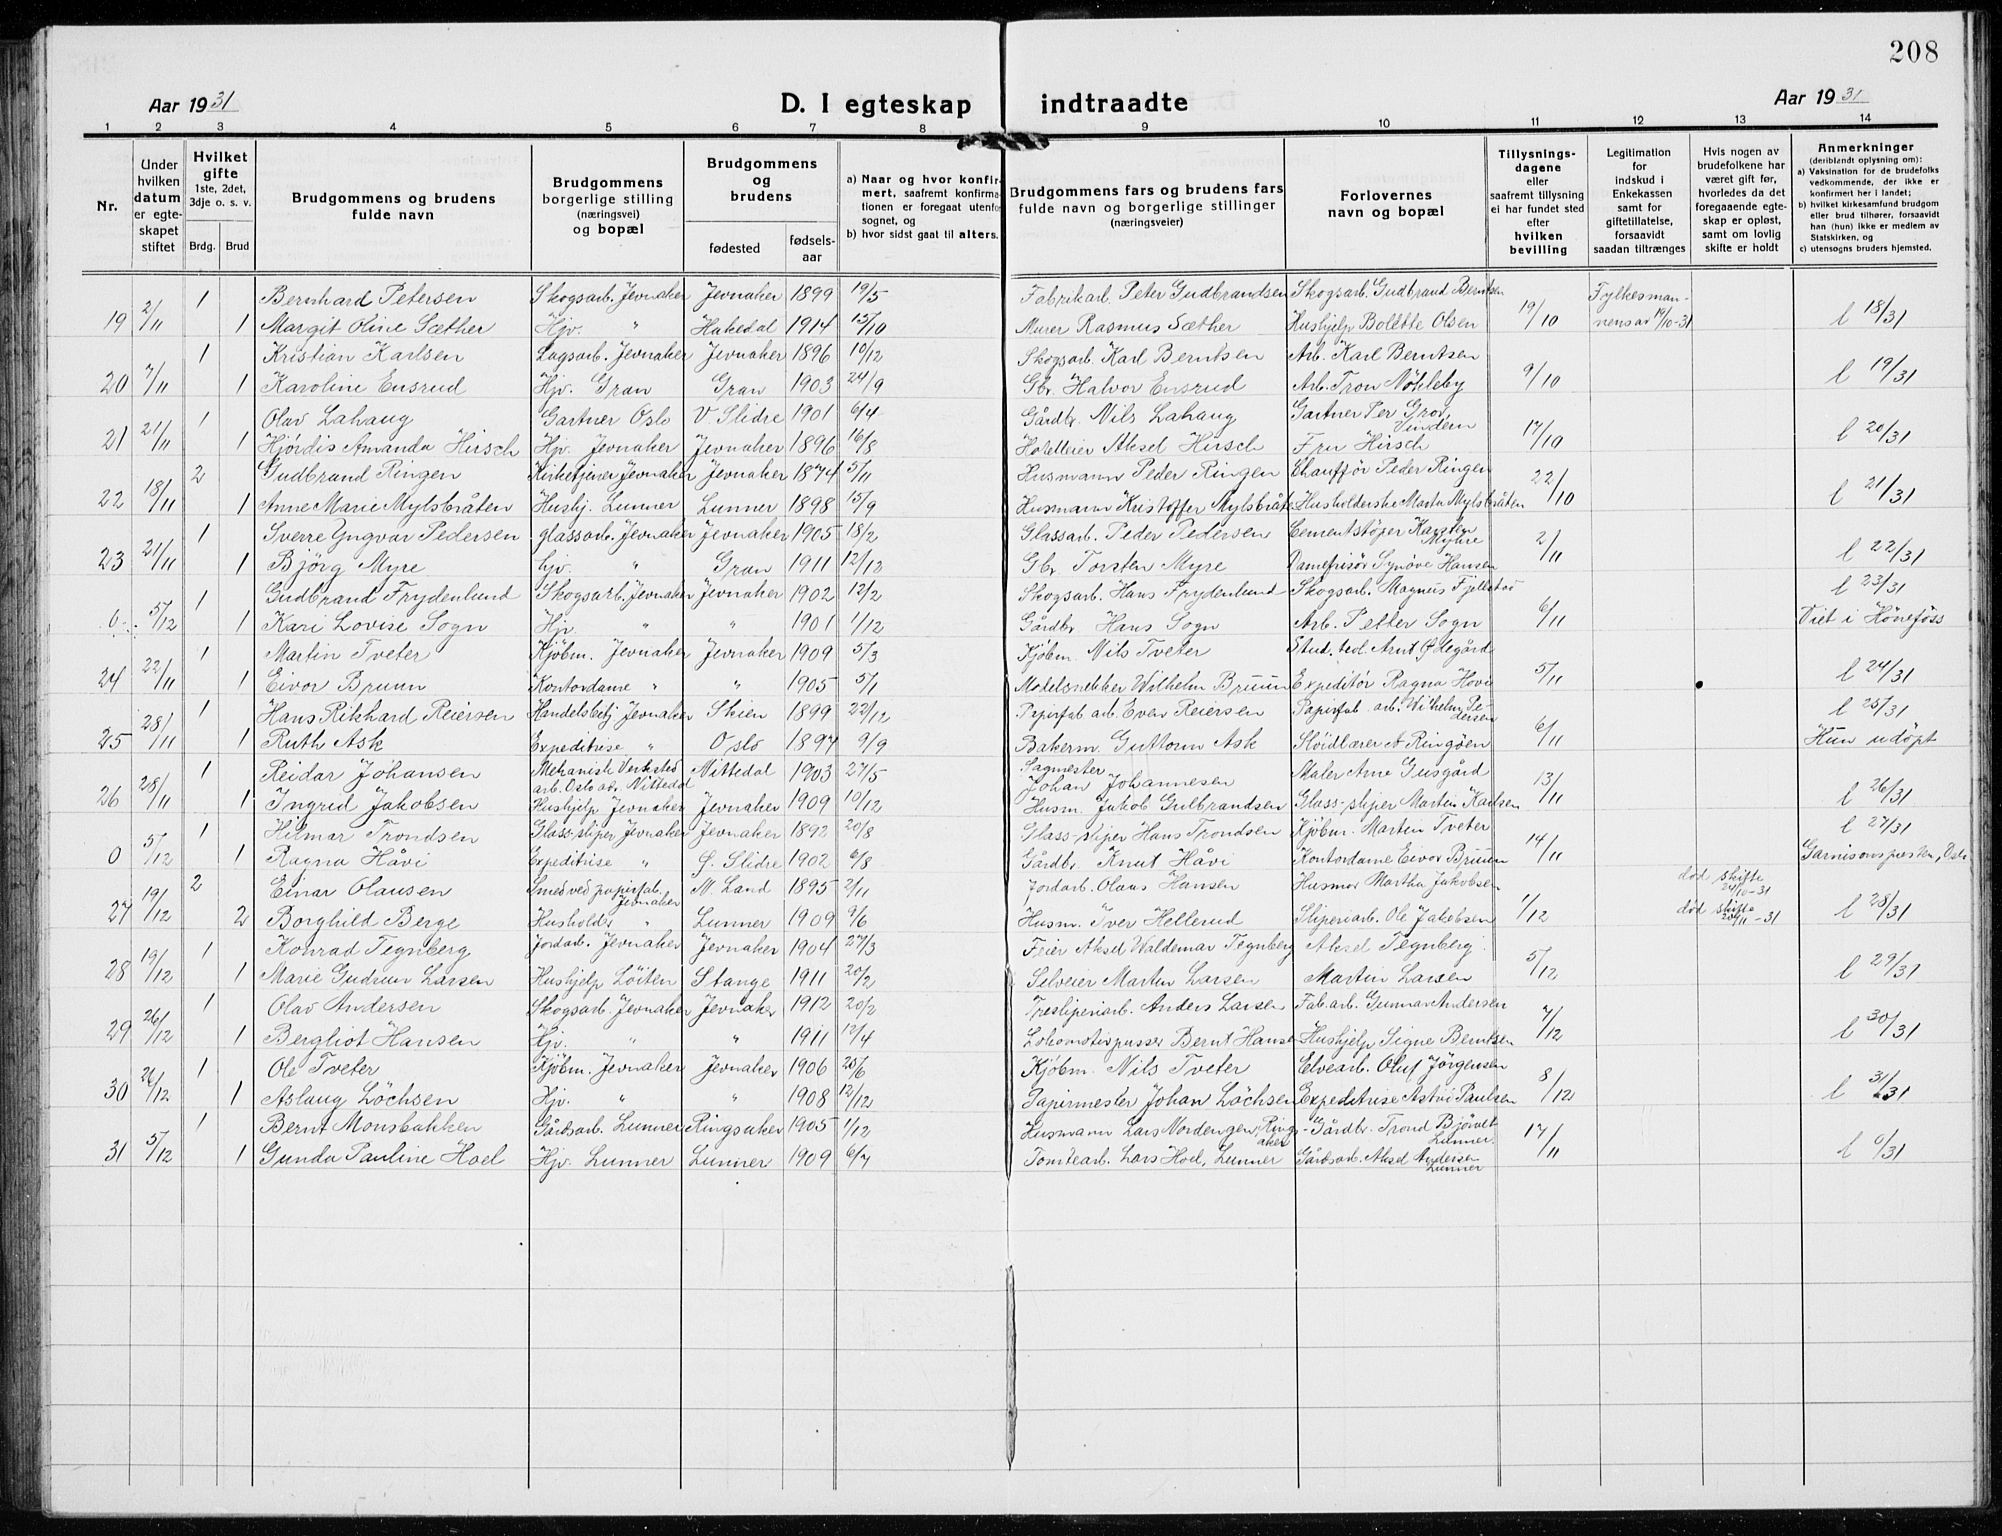 208
Aar 1931
D. I egteskap indtraadte
Aar 1931
1 2 3 4 5 6 7 8 9 10 11 12 13 14
Nr.
Under hvilken datum er egteskapet stiftet
Hvilket gifte 1ste, 2det, 3dje o. s. v.
Brdg. Brud
Brudgommens og brudens fulde navn
Brudgommens borgerlige stilling (næringsvei) og bopæl
Brudgommens og brudens
fødested fødselsaar
a) Naar og hvor konfirmert, saafremt konfirmationen er foregaat utenfor sognet, og
b) hvor sidst gaat til alters.
Brudgommens fars og brudens fars fulde navn og borgerlige stillinger (næringsveier)
Forlovernes navn og bopæl
Tillysningsdagene eller saafremt tillysning ei har fundet sted efter hvilken bevilling
Legitimation for indskud i Enkekassen samt for giftetillatelse, forsaavidt saadan tiltrænges
Hvis nogen av brudefolkene har været gift før, hvorledes da det foregaaende egteskap er opløst, samt om lovlig skifte er holdt
Anmerkninger (deriblandt oplysning om):
a) Vaksination for de brudefolks vedkommende, der ikke er konfirmert her i landet;
b) hvilket kirkesamfund brudgom eller brud tilhører, forsaavidt han (hun) ikke er medlem av Statskirken, og
c) utensogns bruders hjemsted.
1 Bernhard Petersen Skogsarb. Jevnaker Jevnaker 1899 19/5 Fabrikarb. Peter Gudbrandsen Skogsarb. Gudbrand Berntsen Fylkesman-
19 2/11 1 Margit Oline Sæther Hjv. " Hakedal 1914 15/10 Murer Rasmus Sæther Hushjelp Bolette Olsen 19/10 nens av 19/10-31 l 18/31
1 Kristian Karlsen Lagsarb. Jevnaker Jevnaker 1896 10/12 Skogsarb. Karl Berntsen Arb. Karl Berntsen
20 7/11 1 Karoline Ensrud Hjv. Gran Gran 1903 24/9 Gbr. Halvor Ensrud Arb. Tron Nökleby 9/10 l 19/31
1 Olav Lahaug Gartner Oslo V. Slidre 1901 6/4 Gårdbr. Nils Lahaug Gartner Per Grov, Vindern
21 21/11 1 Hjördis Amanda Hirsch Hjv. Jevnaker Jevnaker 1896 16/8 Hotelleier Aksel Hirsch Fru Hirsch 17/10 l 20/31
2 Gudbrand Ringen Kirketjener Jevnaker Jevnaker 1874 5/11 Husmann Peder Ringen Chaufför Peder Ringen
22 18/11 1 Anne Marie Mylsbråten Hushj. Lunner Lunner 1898 15/9 Husmann Kristoffer Mylsbråten Husholderske Marta Mylsbråten 22/10 l 21/31
1 Sverre Yngvar Pedersen glassarb. Jevnaker Jevnaker 1905 18/2 Glassarb. Peder Pedersen Cementstöper Karsten Myhre
23 21/11 1 Björg Myre hjv. " Gran 1911 12/12 Gbr. Torsten Myre Damefrisör Synöve Hansen 2/11 l 22/31
1 Gudbrand Frydenlund Skogsarb. Jevnaker Jevnaker 1902 12/2 Skogsarb. Hans Frydenlund Skogsarb. Magnus Fjellstö l 23/31
0 5/12 1 Kari Lovise Sogn Hjv. " " 1901 1/12 Gårdbr Hans Sogn Arb. Petter Sogn 6/11 Viet i Hönefoss
1 Martin Tveter Kjöbm. Jevnaker Jevnaker 1909 5/3 Kjöbm. Nils Tveter Stud. teol. Arnt Ødegård
24 22/11 1 Eivor Bruun Kontordame " " 1905 5/1 Modelsnekker Wilhelm Bruun Expeditör Ragna Hövi 5/11 l 24/31
1 Hans Rikhard Reiersen Handelsbetj Jevnaker Skien 1899 22/12 Papirfab arb. Even Reiersen Papirfab. arb. Wilhelm Pedersen l 25/31
25 28/11 1 Ruth Ask Expeditrise " Oslo 1897 9/9 Bakerm. Guttorm Ask Slöidlærer A Ringöen 6/11 Hun udöpt
1 Reidar Johansen Mekanisk Verksted arb. Oslo av Nittedal Nittedal 1903 27/5 Sagmester Johan Johannesen Maler Arne Gusgård
26 28/11 1 Ingrid Jakobsen Hushjelp Jevnaker Jevnaker 1909 10/12 Husm. Jakob Gulbrandsen Glass-sliper Martin Karlsen 13/11 l 26/31
1 Hilmar Trondsen Glass-sliper Jevnaker Jevnaker 1892 20/8 Glass-sliper Hans Trondsen Kjöbm. Martin Tveter l 27/31
0 5/12 1 Ragna Håvi Expeditrise " Ö. Slidre 1902 6/8 Gårdbr. Knut Håvi Kontordame Eivor Bruun 14/11 Garnisonspresten, Oslo
2 Einar Olausen Smed ved papirfab. Jevnaker N. Land 1895 2/11 Jordarb. Olaus Hansen Husmor Martha Jakobsen död skifte 24/10-31
27 19/12 2 Borghild Berge Husholder " Lunner 1909 9/6 Husm. Iver Hellerud Sliperiarb. Ole Jakobsen 1/12 död skifte 20/11-31 l 28/31
1 Konrad Tegnberg Jordarb. Jevnaker Jevnaker 1904 27/3 Feier Aksel Waldemar Tegnberg Aksel Tegnberg
28 19/12 1 Marie Gudrun Larsen Hushjelp Löiten Stange 1911 20/2 Selveier Martin Larsen Martin Larsen 5/12 l 29/31
1 Olav Andersen Skogsarb. Jevnaker Jevnaker 1912 20/2 Tresliperiarb. Anders Larsen Fab.arb. Gunnar Andersen
29 26/12 1 Bergliot Hansen Hjv. " " 1911 17/4 Lokomotivpusser Bernt Hansen Hushjelp Signe Berntsen 7/12 l 30/31
1 Ole Tveter Kjöbm. Jevnaker Jevnaker 1906 20/6 Kjöbm. Nils Tveter Elvearb. Oluf Jörgensen
30 26/12 1 Aslaug Löchsen Hjv. " " 1908 12/12 Papirmester Johan Löchsen Expeditrise Astri Paulsen 8/12 l 31/31
1 Bernt Monsbakken Gårdsarb. Lunner Ringsaker 1905 1/12 Husmann Lars Nordengen, Ringsaker Gårdbr. Trond Björvik Lunner.
31 5/12 1 Gunda Pauline Hoel Hjv. Lunner Lunner 1909 6/7 Tomtearb. Lars Hoel, Lunner Gårdsarb. Aksel Andersen Lunner 17/11 l 0/31